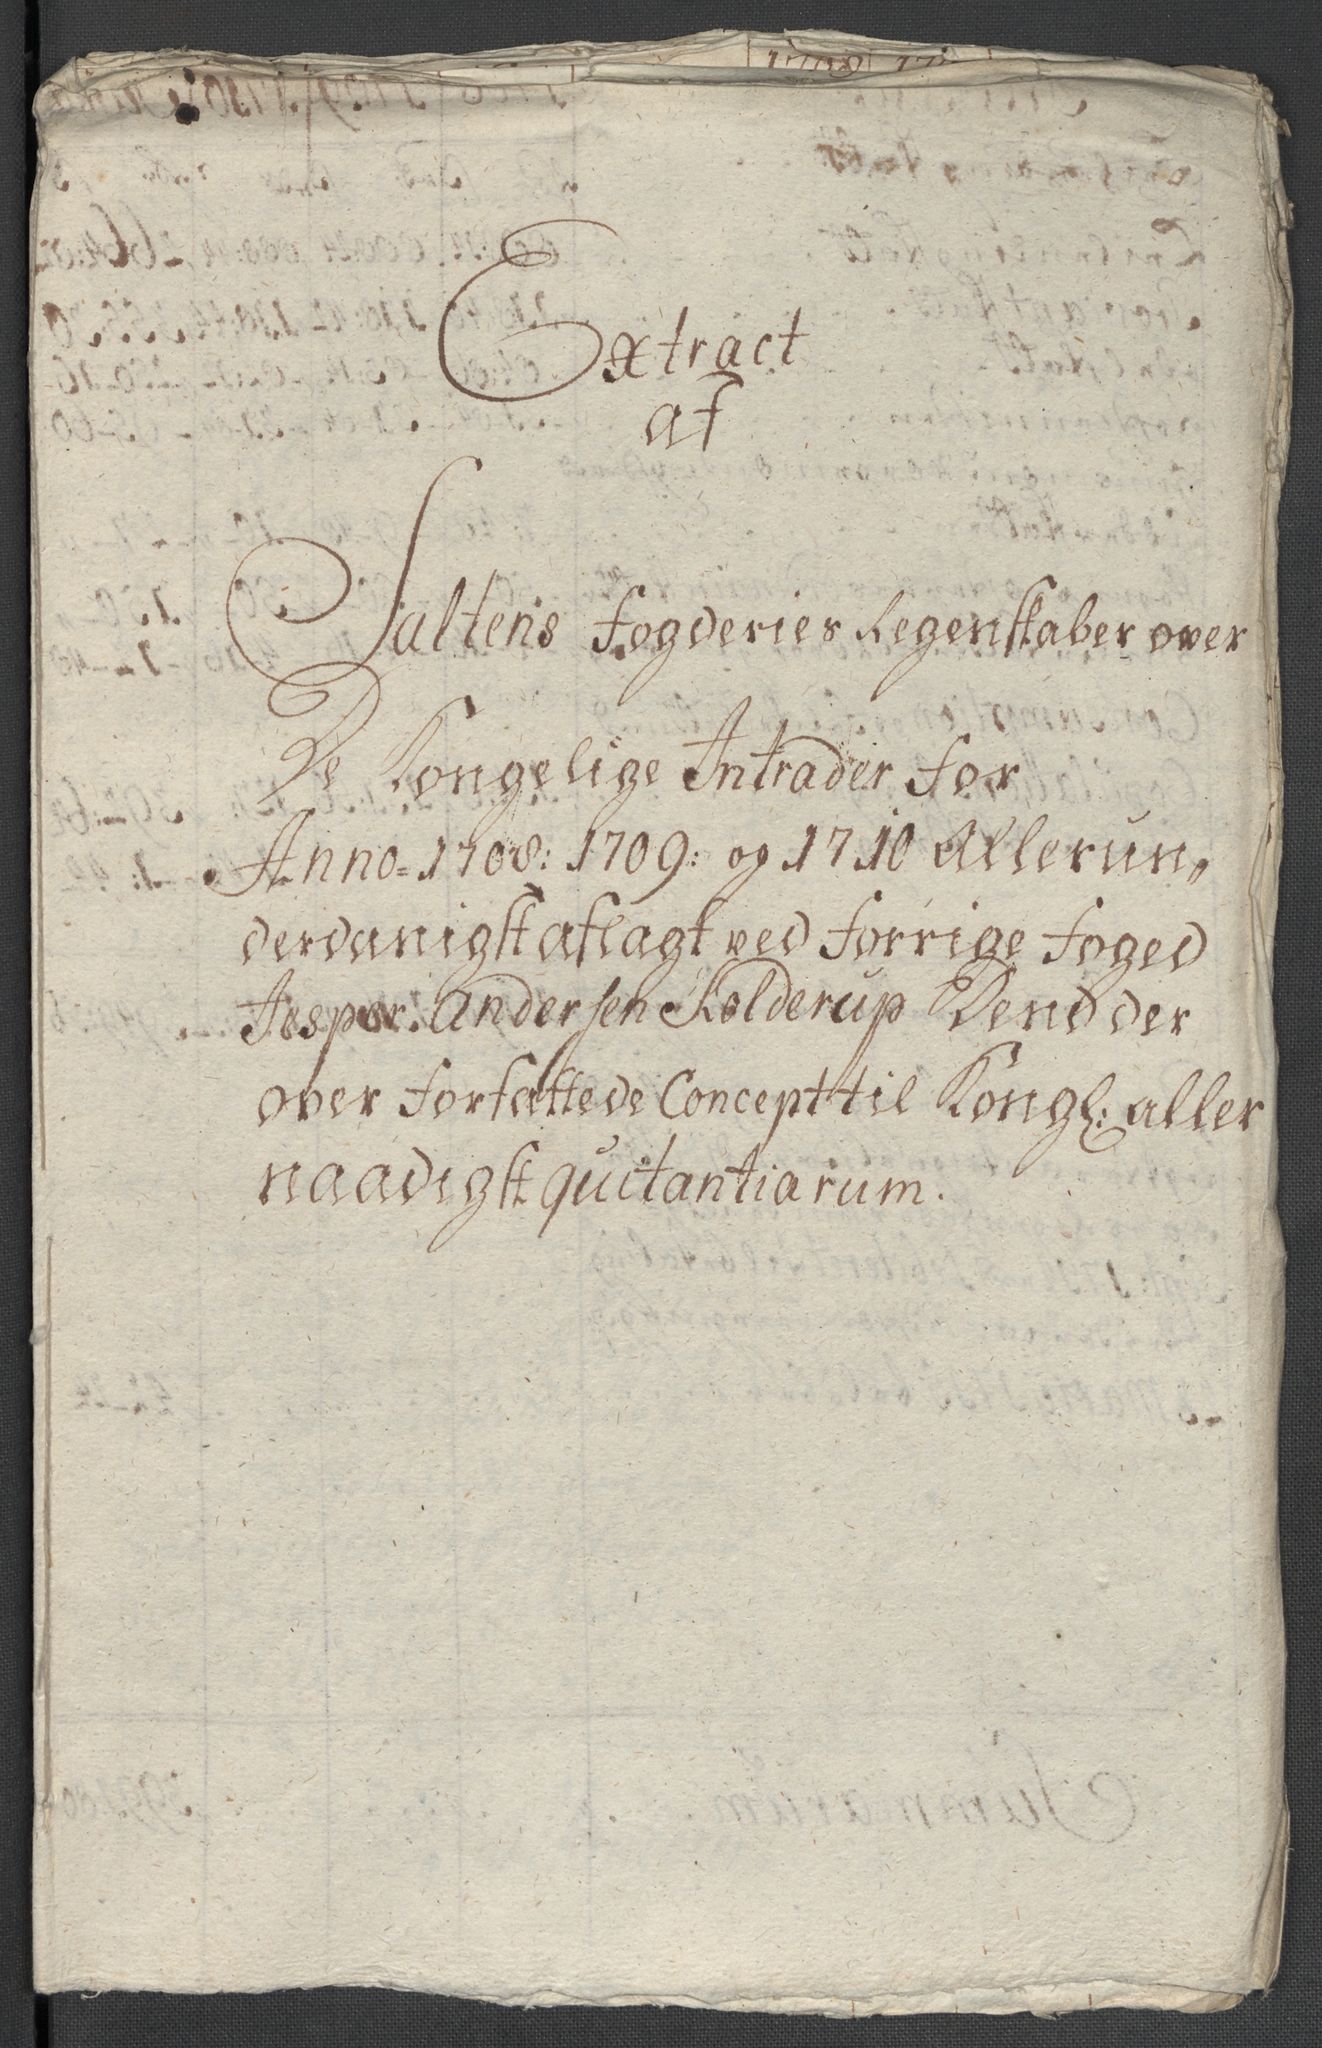 Extract
af
Saltens fogderies Regenskaber over
De Kongelige Intrader for
Anno 1708: 1709: og 1710 Allerun,
derdanigst aflagt ved forrige foged
Jesper Andersen Kolderup Dend der
over forfattede Concept til Kongl: aller
naadigst quitantiarum.